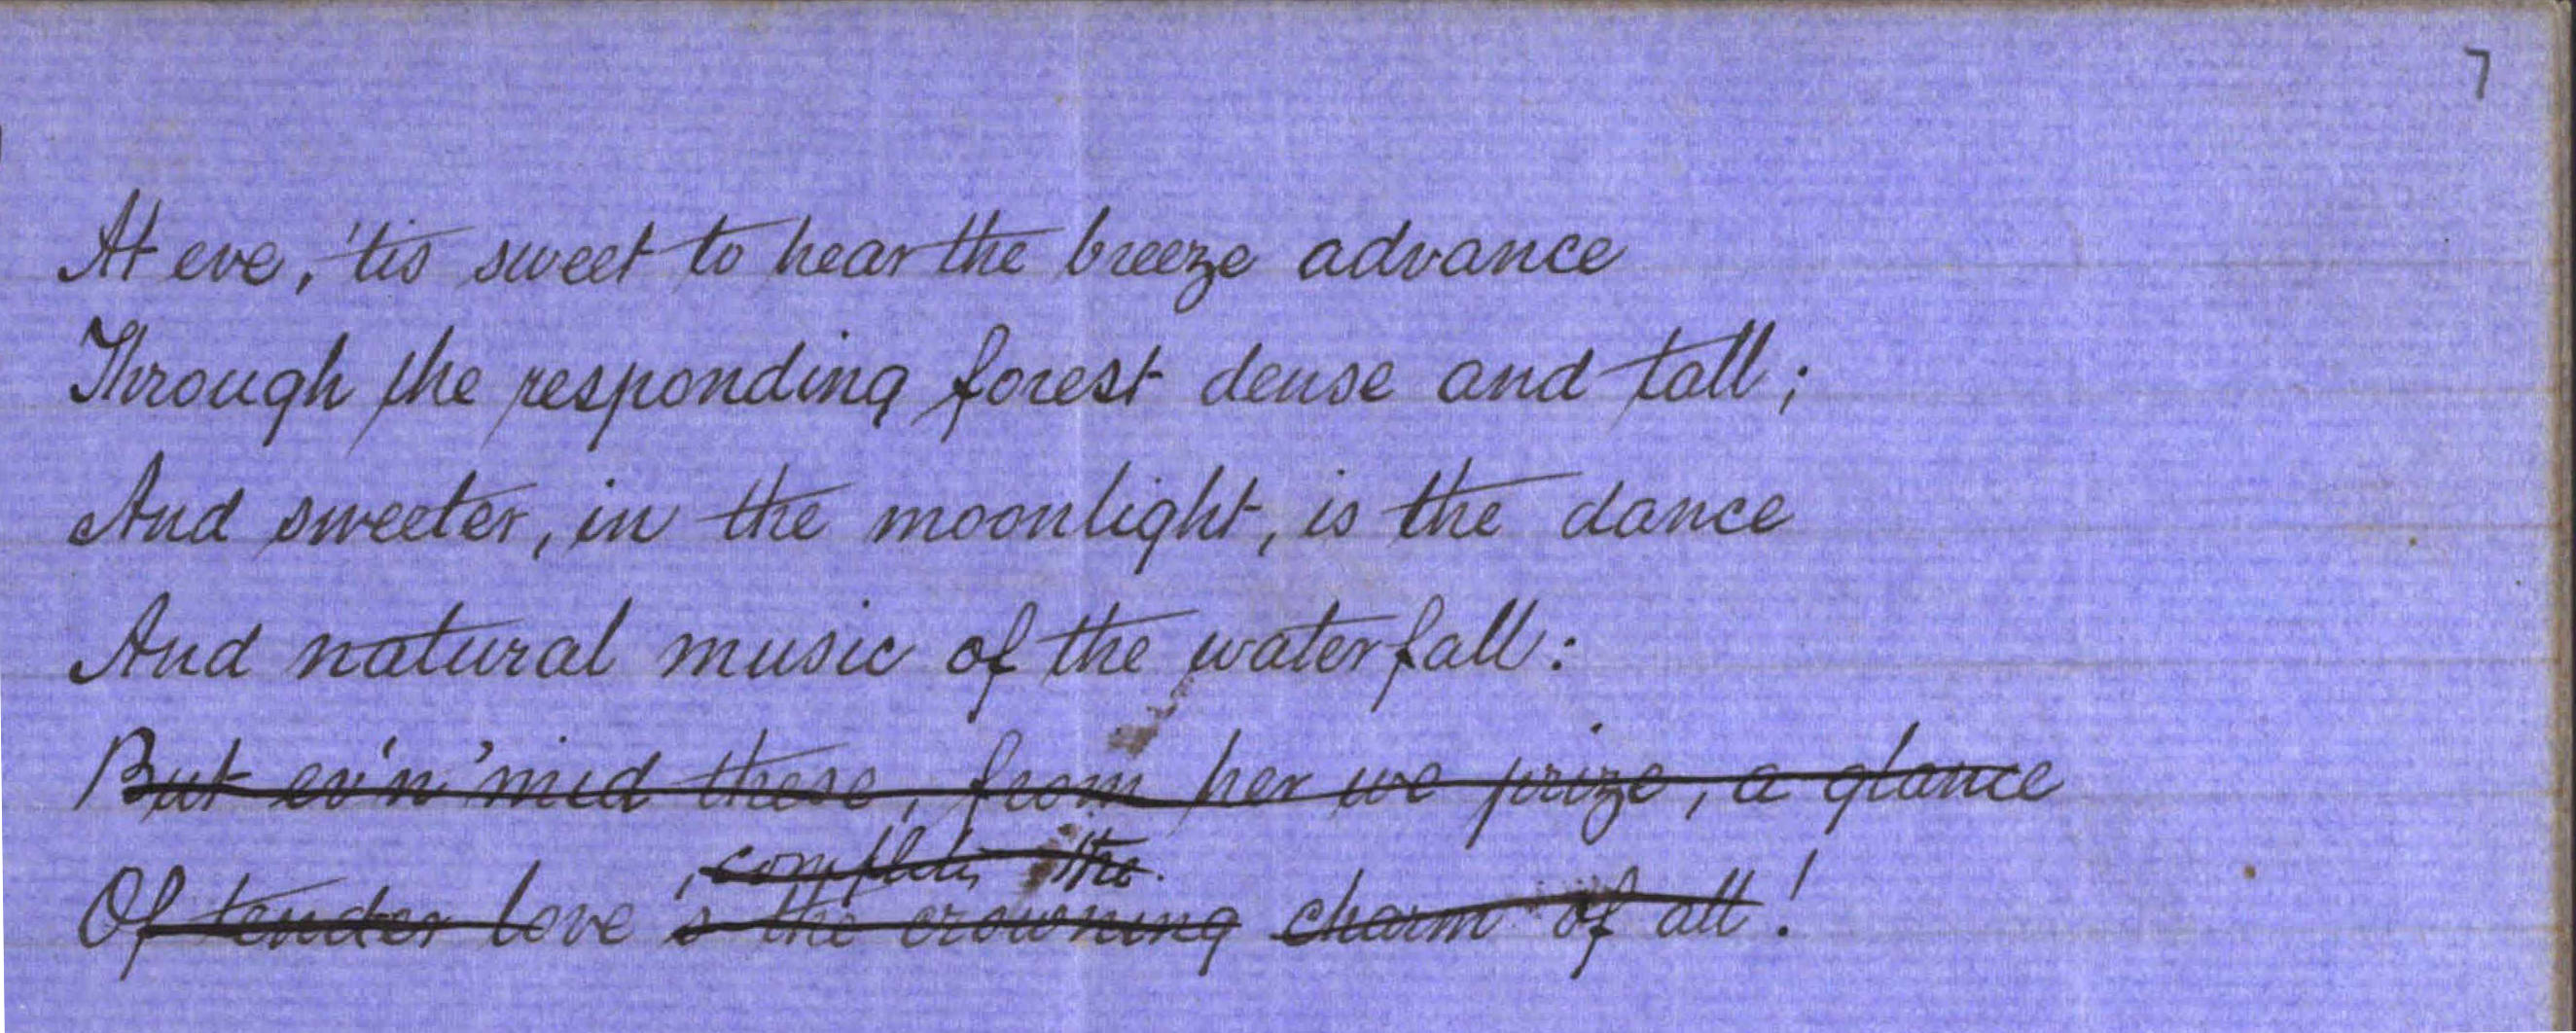 7
At eve, 'tis sweet to hear the breeze advance
Through the responding forest dense and tall;
And sweeter, in the moonlight, is the dance
And natural music of the waterfall:
But ev'n 'mid these, from her we prize, a glance
, completes the
Of tender love is the crowning charm of all!